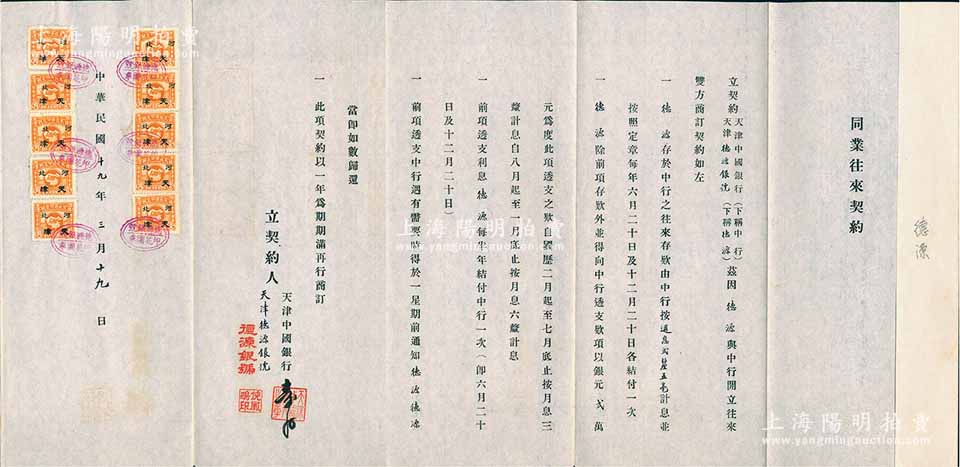 德源
同業往來契約
立契約 天津中國銀行(下稱中行) 天津德源銀號(下稱德源) 茲因 德源與中行開立往來
雙方商訂契約如左
一 德源存於中行之往來存欵由中行按週息弍釐五毫計息並
按照定章每年六月二十日及十二月二十日各結付一次
一 德源除前項存欵外並得向中行透支欵項以銀元弍萬
元爲度此項透支之欵自國歷二月起至七月底止按月息三
釐計息自八月起至一月底止按月息六釐計息
一 前項透支利息德源每半年結付中行一次(卽六月二十
日及十二月二十日)
一 前項透支中行遇有需要時得於一星期前通知德源德源
當卽如數歸還
一 此項契約以一年爲期期滿再行商訂
立契約人
天津中國銀行
天津德源銀號
德源銀號
中華民國十九年三月十九日
河北
天津
河北
天津
河北
天津
河北
天津
河北
天津
河北
天津
河北
天津
河北
天津
河北
天津
河北
天津
上海陽明拍賣
www.yangmingauction.com
上海陽明拍賣
www.yangmingauction.com